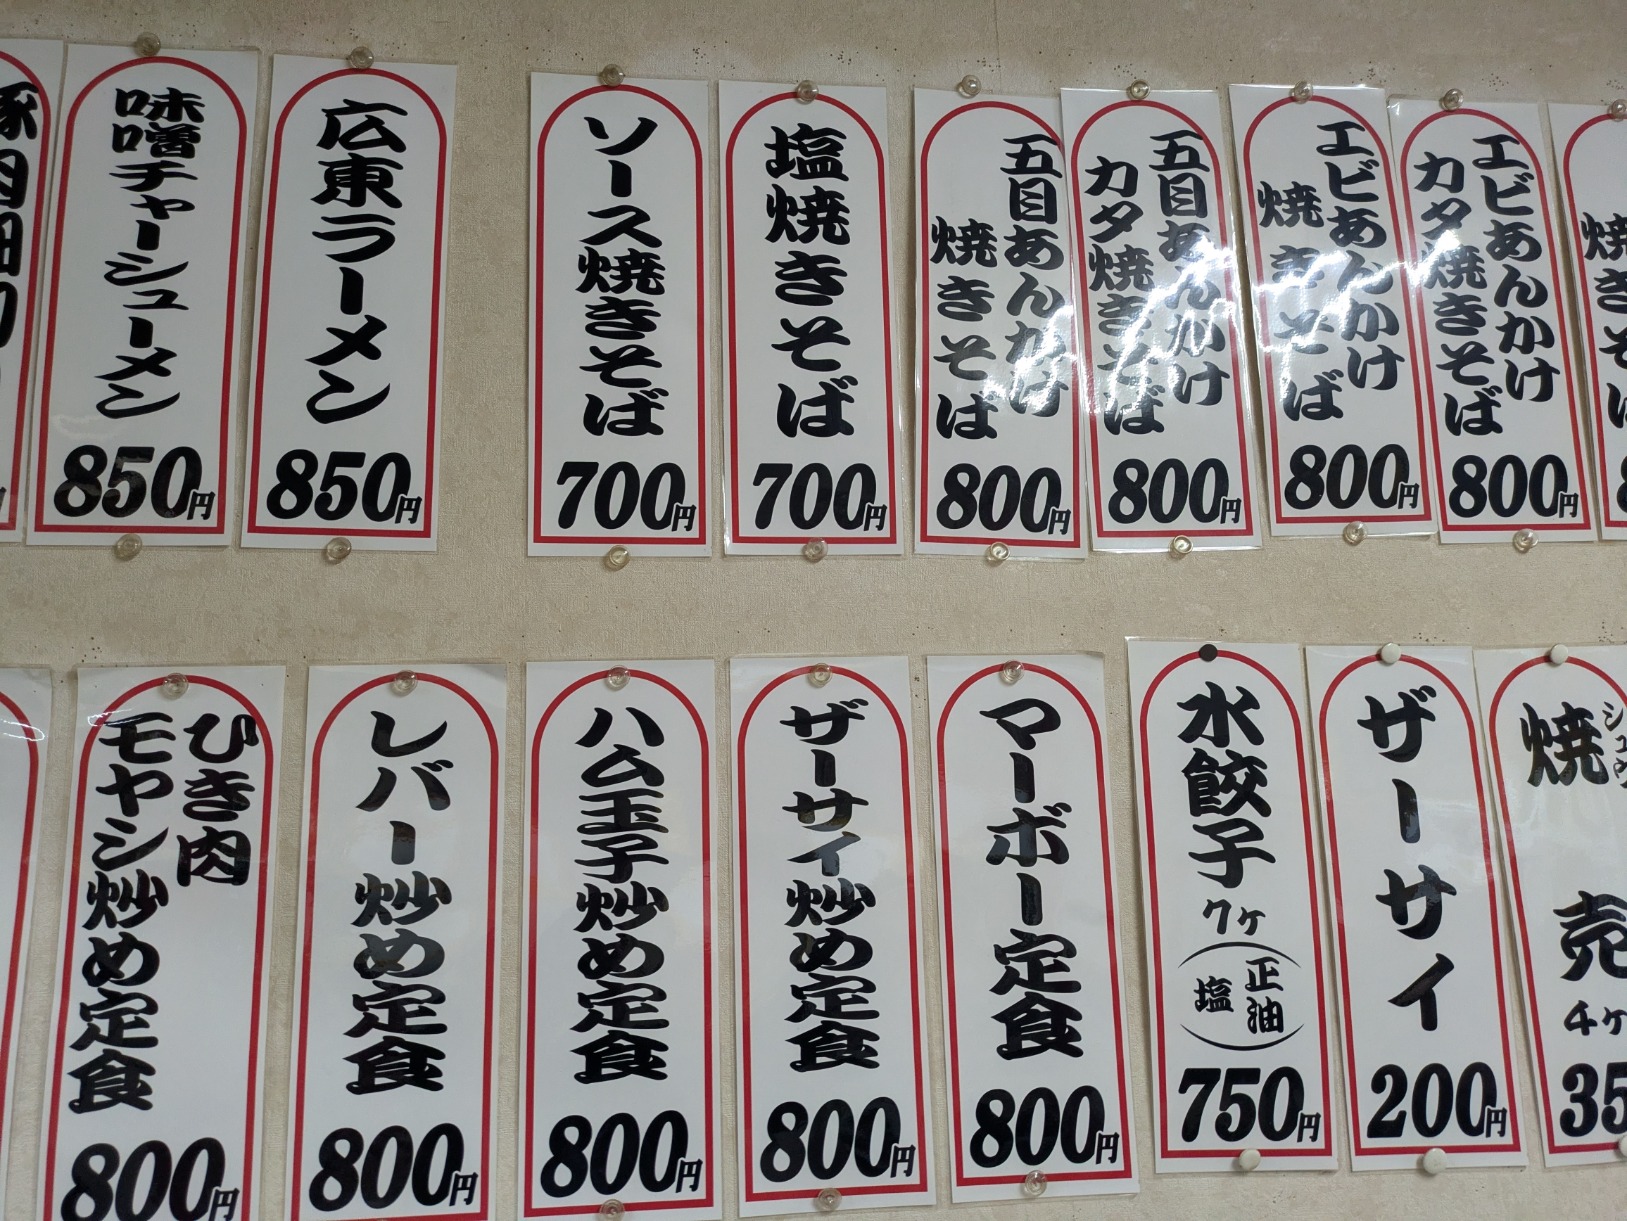 味噌チャーシューメン
850円
広東ラーメン
850円
ソース焼きそば
700円
塩焼きそば
700円
五目あんかけ
焼きそば
800円
五目あんかけ
カタ焼きそば
800円
エビあんかけ
焼きそば
800円
エビあんかけ
カタ焼きそば
800円
焼きそば
ひき肉
モヤシ炒め定食
800円
レバー炒め定食
800円
ハム玉子炒め定食
800円
ザーサイ炒め定食
800円
マーボー定食
800円
水餃子
7ヶ
正油
塩
750円
ザーサイ
200円
焼売
4ケ
35